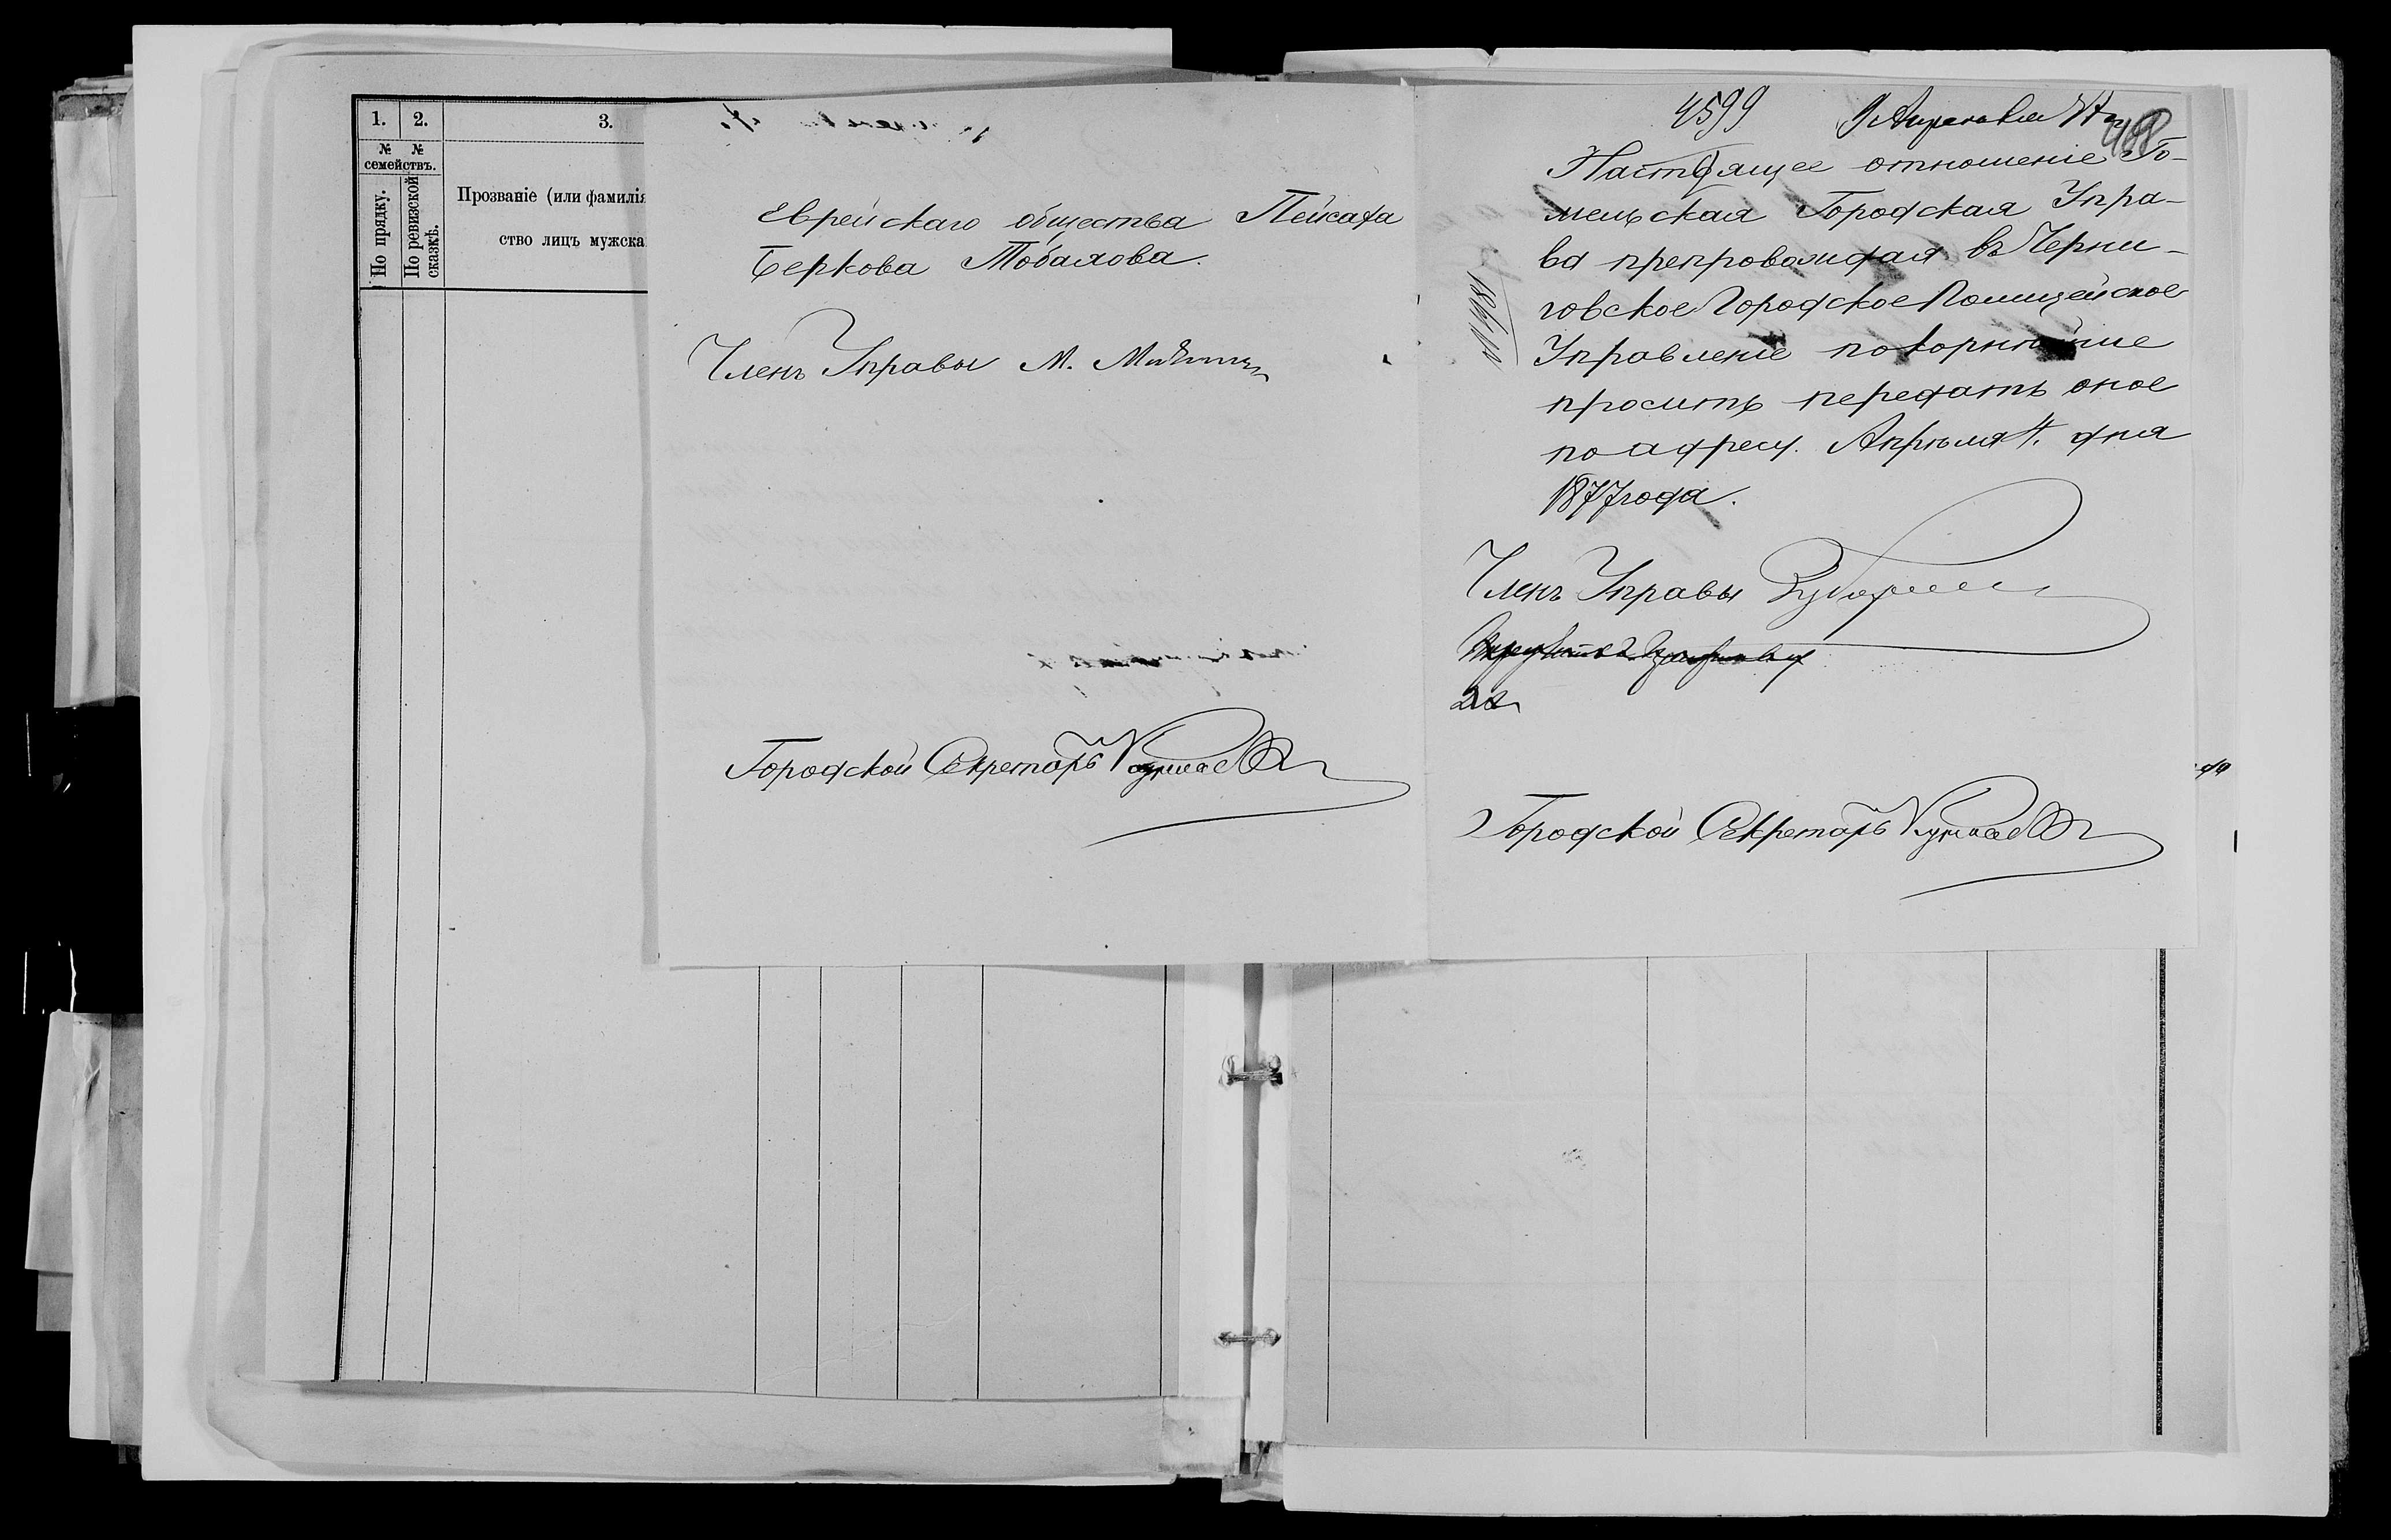 1. 2. 3.
№ №
семействъ.
По прядку.
По ревизской
сказкѣ.
Прозваніе (или фамилія
ство лицъ мужска
Еврейскаго общества Пейсаха
Беркова Тобалова.
Членъ Управы М.
Городской Секретарь
4599 9 Апреля
408
Настоящее отношеніе Го-
мельская Городская Упра-
ва препровождая въ Черни-
говское Городское Полицейское
Управленіе покорнѣйше
проситъ передать оное
по адресу. Апрѣля 4. дня
1877 года.
Членъ Управы
Городской Секретарь